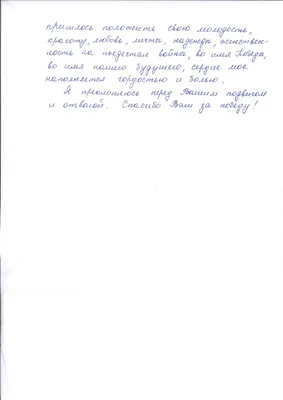 пришлось положить свою молодость,
красоту, любовь, мечты, надежды, женствен-
ность на пьедестал войны, во имя Победы,
во имя нашего будущего, сердце моё
наполняется гордостью и болью.
Я преклоняюсь перед Вашим подвигом
и отвагой. Спасибо Вам за победу!